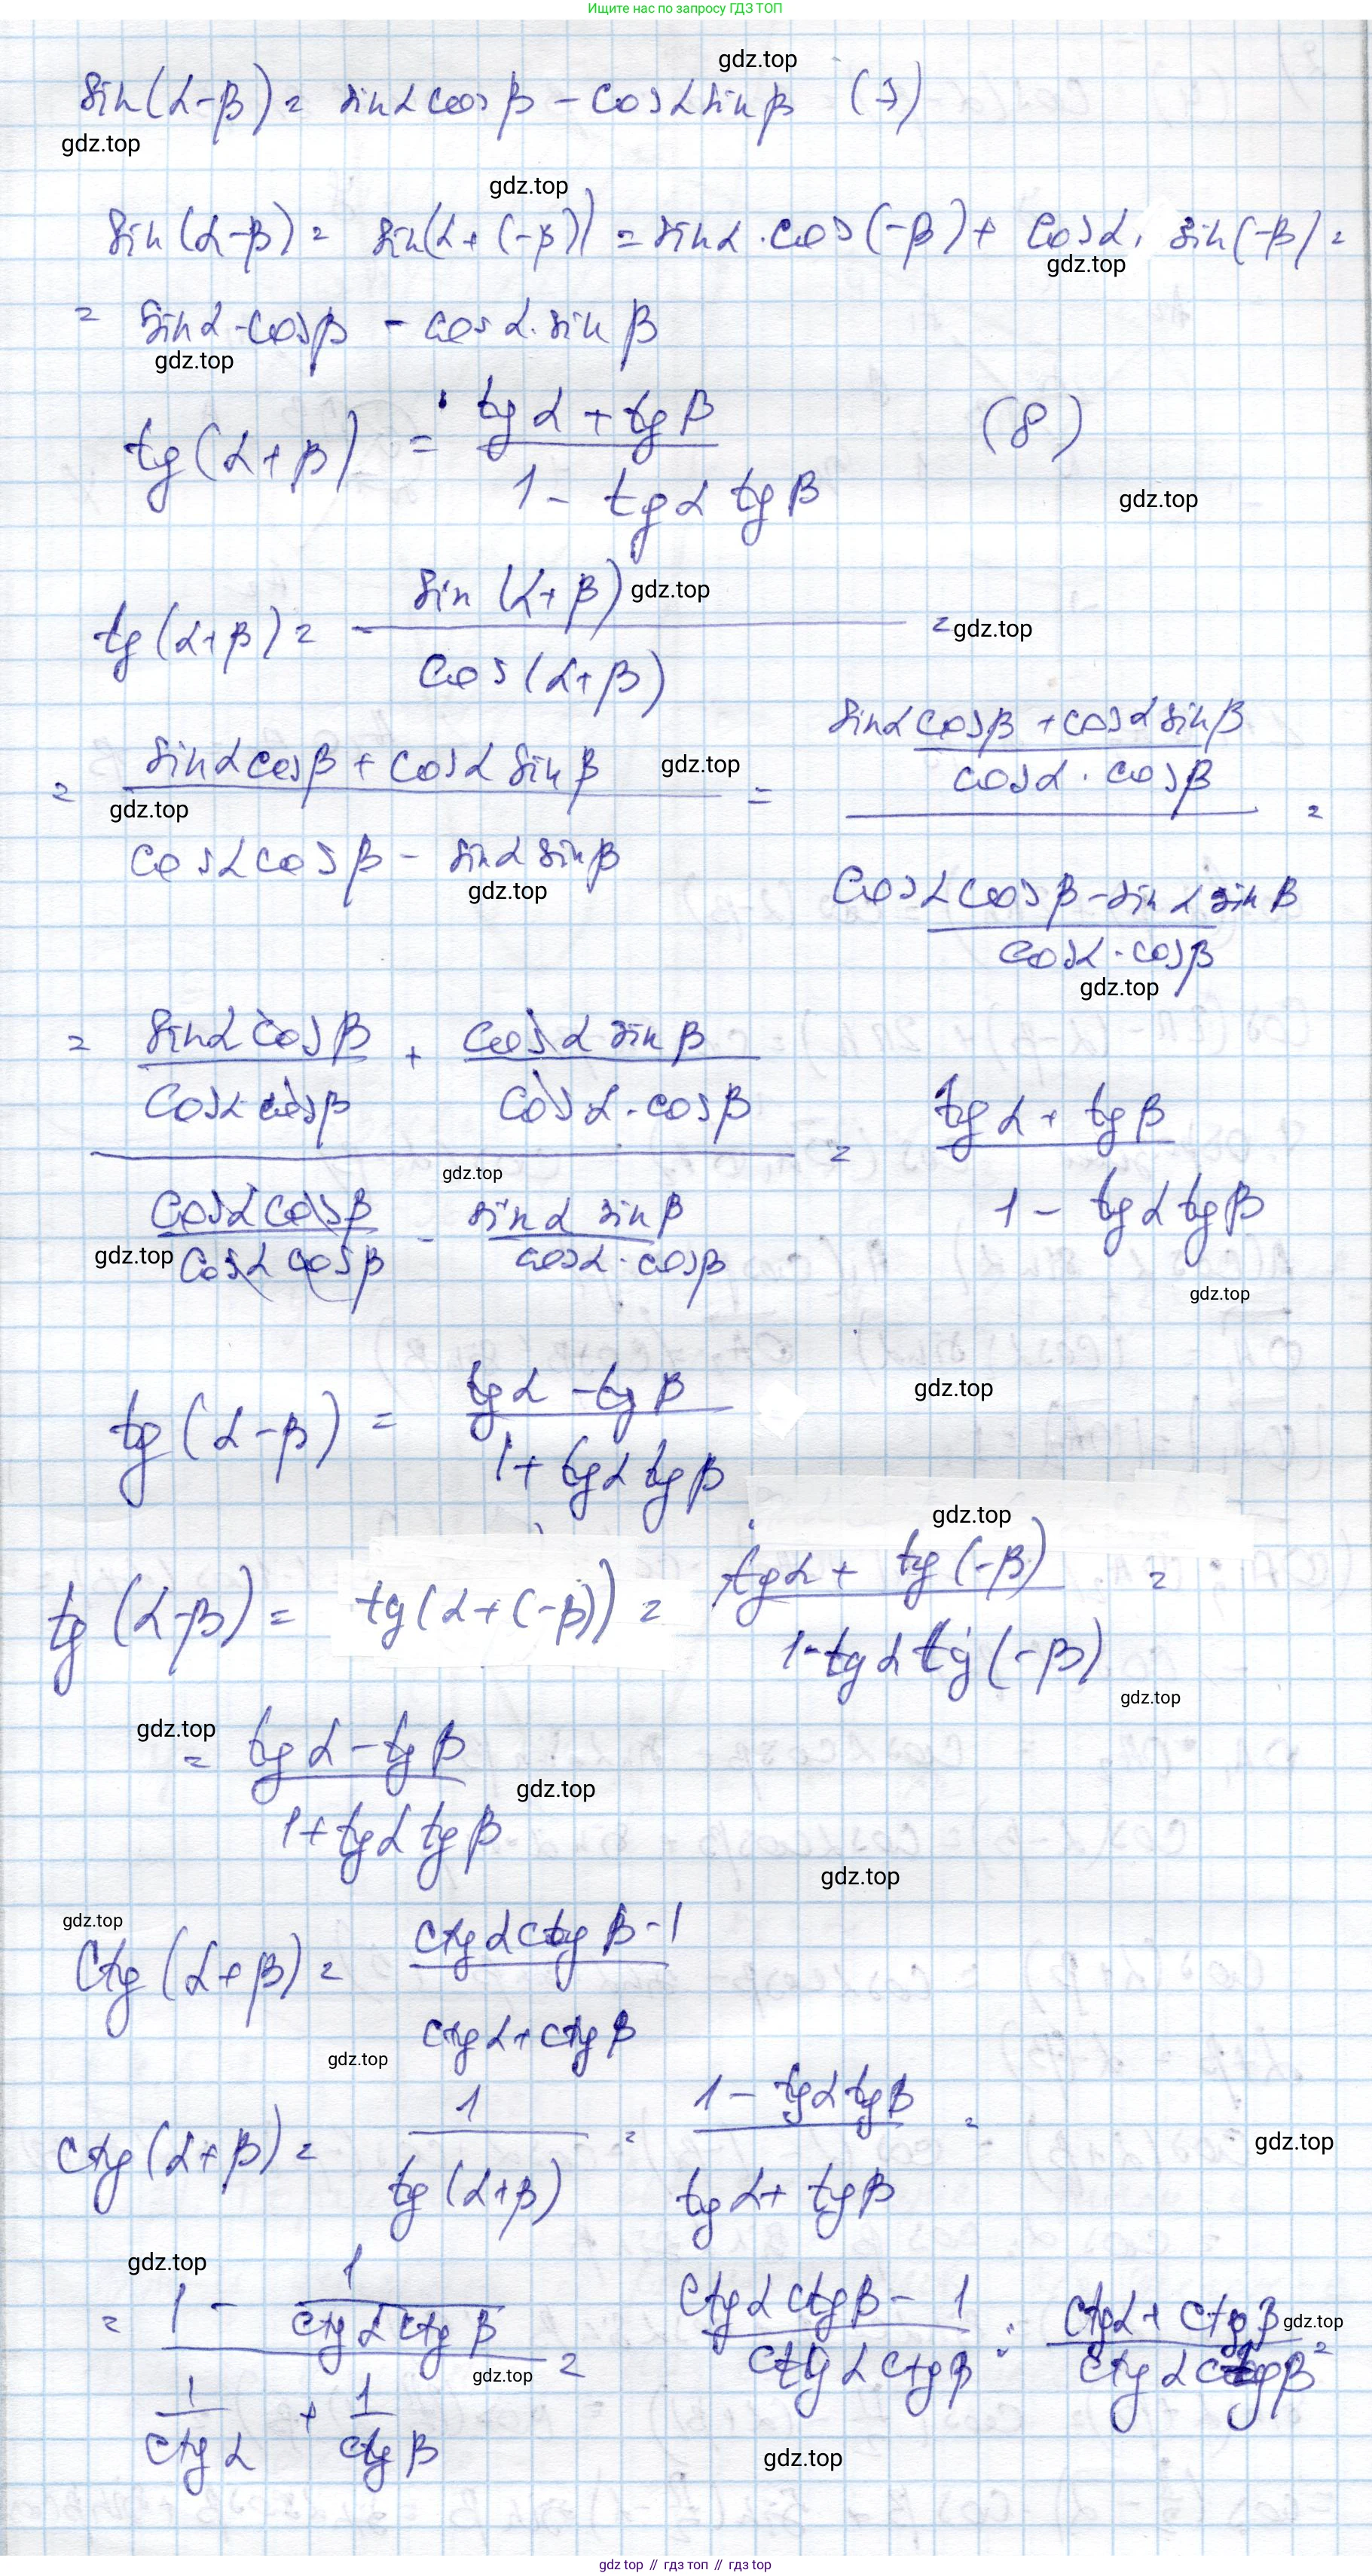 Ищите нас по запросу ГДЗ ТОП
gdz.top
sin(α-β) = sinα cosβ - cosα sinβ (7)
gdz.top
gdz.top
sin(α-β) = sin(α+(-β)) = sinα · cos(-β) + cosα · sin(-β) =
gdz.top
= sinα · cosβ - cosα · sinβ
gdz.top
tg(α+β) = (tgα + tgβ) / (1 - tgα tgβ) (8)
gdz.top
tg(α+β) = sin(α+β) / cos(α+β) =
gdz.top
gdz.top
= (sinα cosβ + cosα sinβ) / (cosα cosβ - sinα sinβ) = ((sinα cosβ + cosα sinβ) / (cosα · cosβ)) / ((cosα cosβ - sinα sinβ) / (cosα · cosβ)) =
gdz.top
gdz.top
gdz.top
gdz.top
= (sinα cosβ / cosα cosβ + cosα sinβ / cosα · cosβ) / (cosα cosβ / cosα cosβ - sinα sinβ / cosα · cosβ) = (tgα + tgβ) / (1 - tgα tgβ)
gdz.top
gdz.top
gdz.top
tg(α-β) = (tgα - tgβ) / (1 + tgα tgβ)
gdz.top
gdz.top
tg(α-β) = tg(α+(-β)) = (tgα + tg(-β)) / (1 - tgα tg(-β)) =
gdz.top
gdz.top
= (tgα - tgβ) / (1 + tgα tgβ)
gdz.top
gdz.top
gdz.top
ctg(α+β) = (ctgα ctgβ - 1) / (ctgα + ctgβ)
gdz.top
ctg(α+β) = 1 / tg(α+β) = (1 - tgα tgβ) / (tgα + tgβ) =
gdz.top
gdz.top
= (1 - 1 / (ctgα ctgβ)) / (1 / ctgα + 1 / ctgβ) = (ctgα ctgβ - 1) / (ctgα ctgβ) : (ctgα + ctgβ) / (ctgα ctgβ) =
gdz.top
gdz.top
gdz.top
gdz top // гдз топ // gdz top